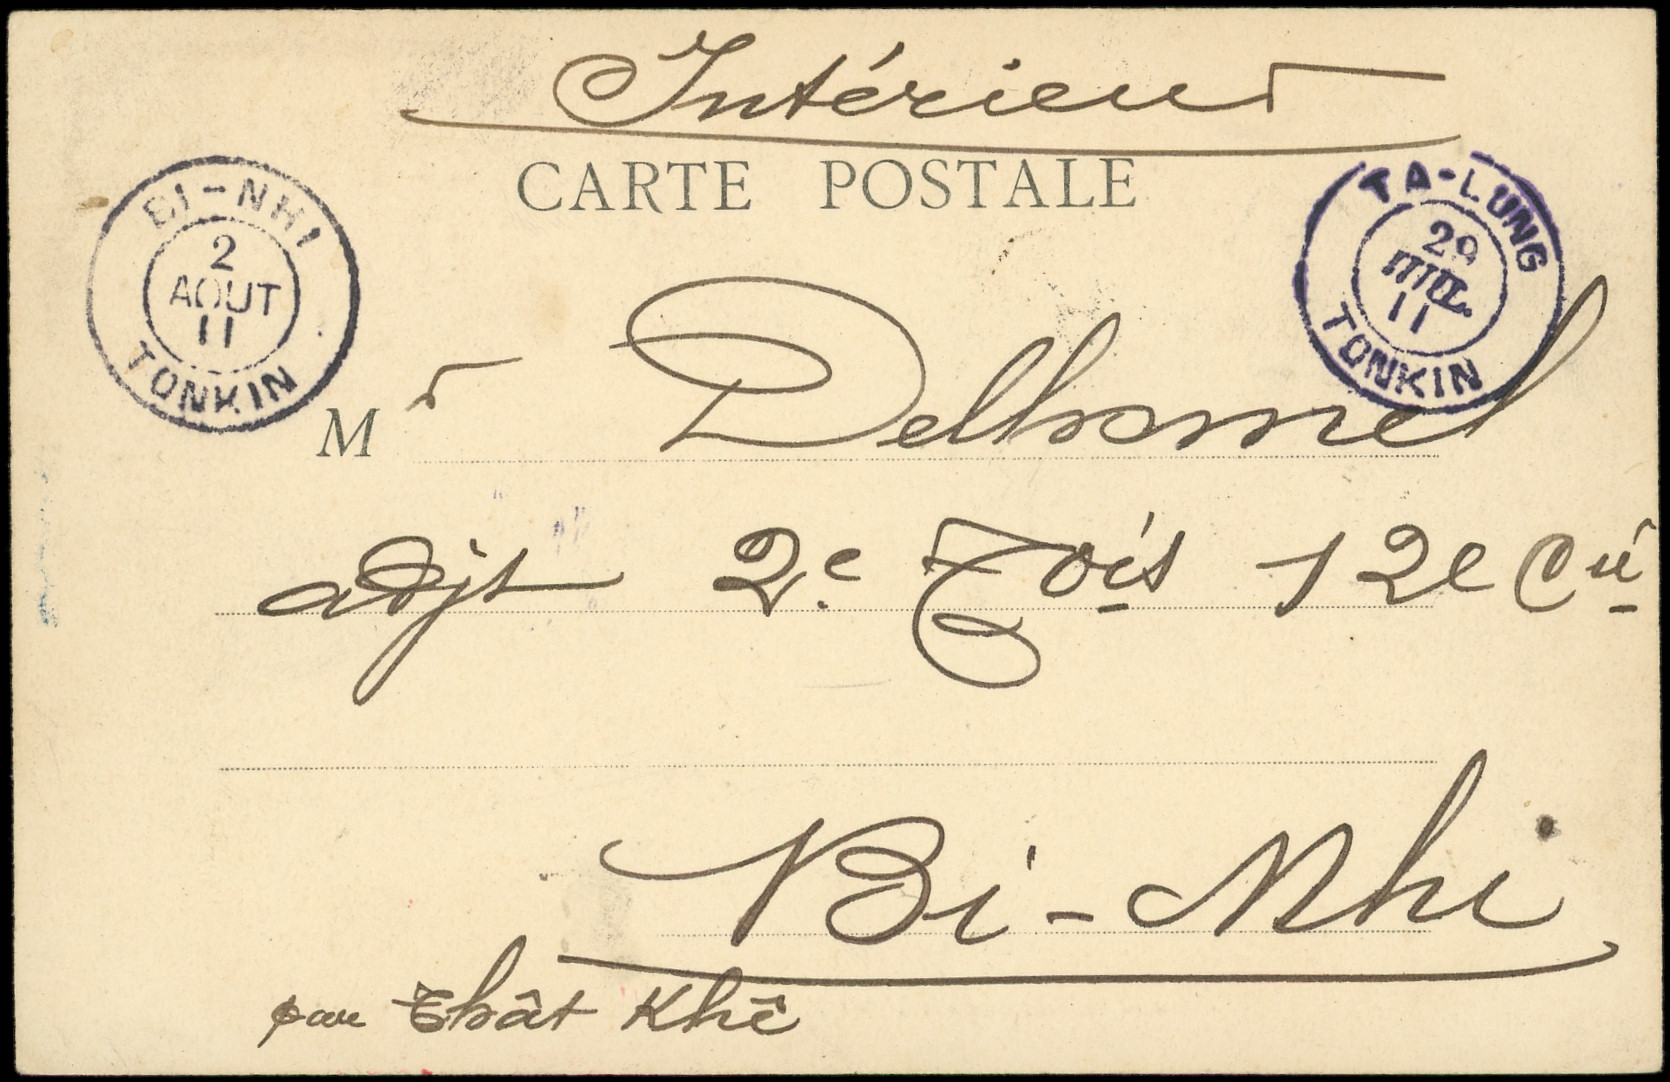 Intérieur
CARTE POSTALE
BI-NHI
2
AOUT
11
TONKIN
TA-LUNG
29
JUIL
11
TONKIN
M r Delhomel
adjt 2e Tois 12e Cie
Bi-Nhi
par Thât Khê